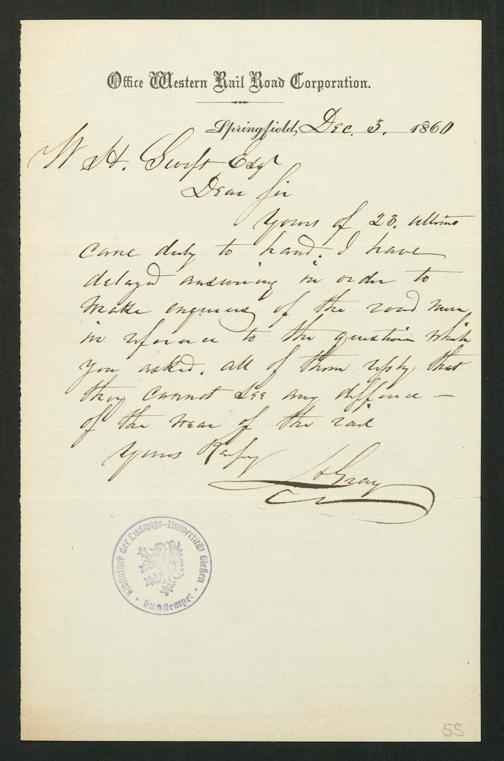 Office Western Rail Road Corporation.
Springfield, Dec. 3. 1860
W. H. Swift Esqr
Dear Sir
Yours of 23. ultimo
came duly to hand. I have
delayed answering in order to
make enquiry of the road men
in reference to the question which
you asked. all of them reply that
they cannot see any diffence –
of the wear of the rail
Yours Respy
H Gray
Bibliothek der Ludwigs-Universität Gießen
55